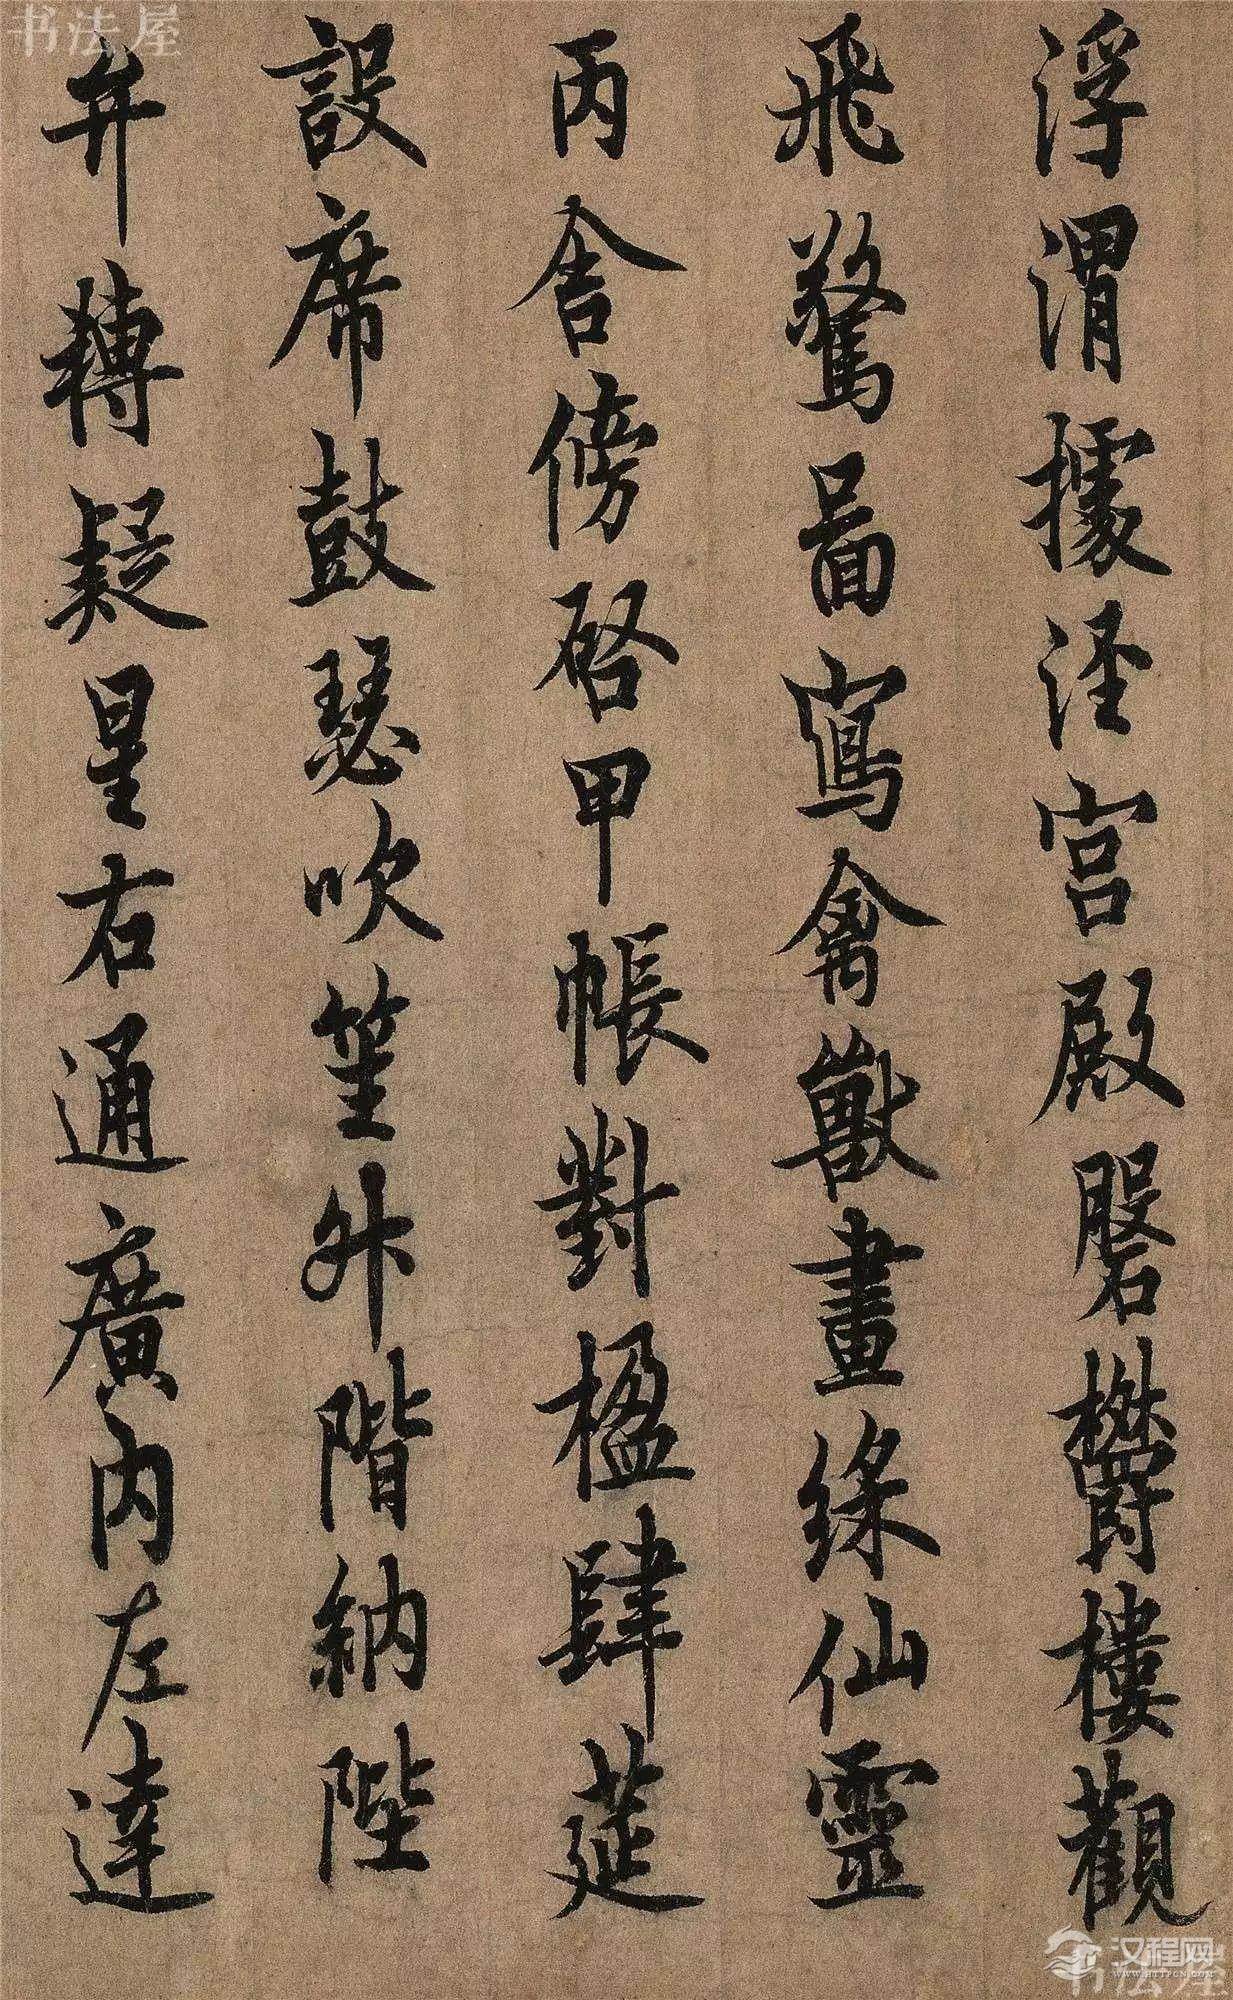 浮渭據涇宮殿磐欝樓觀
飛驚圖寫禽獸畫綵仙靈
丙舍傍啓甲帳對楹肆莚
設席鼓瑟吹笙升階納陛
弁轉疑星右通廣內左達
书法屋
汉程网
WWW.HTTPCN.COM
书法屋